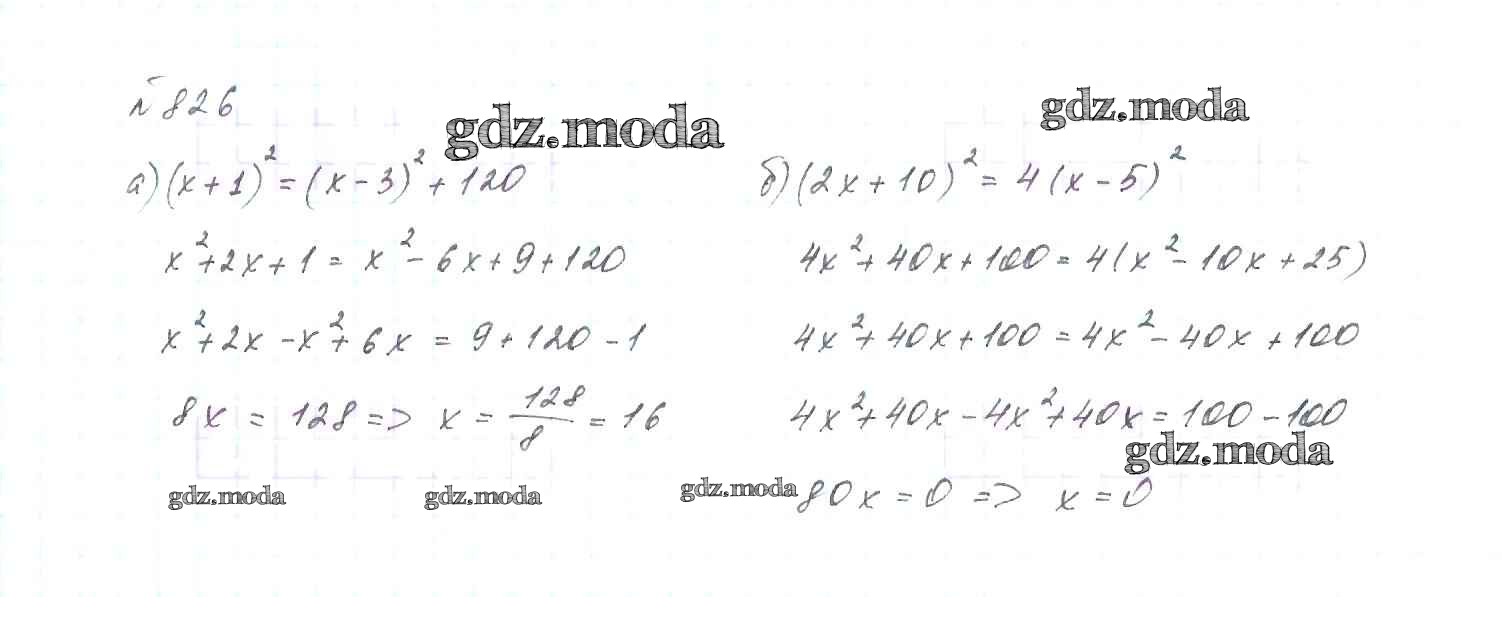 № 826
gdz.moda
gdz.moda
а) (x+1)² = (x-3)² + 120
x²+2x+1 = x²-6x+9+120
x²+2x-x²+6x = 9+120-1
8x = 128 => x = 128/8 = 16
б) (2x+10)² = 4(x-5)²
4x²+40x+100 = 4(x²-10x+25)
4x²+40x+100 = 4x²-40x+100
4x²+40x-4x²+40x = 100-100
gdz.moda
80x = 0 => x = 0
gdz.moda
gdz.moda
gdz.moda